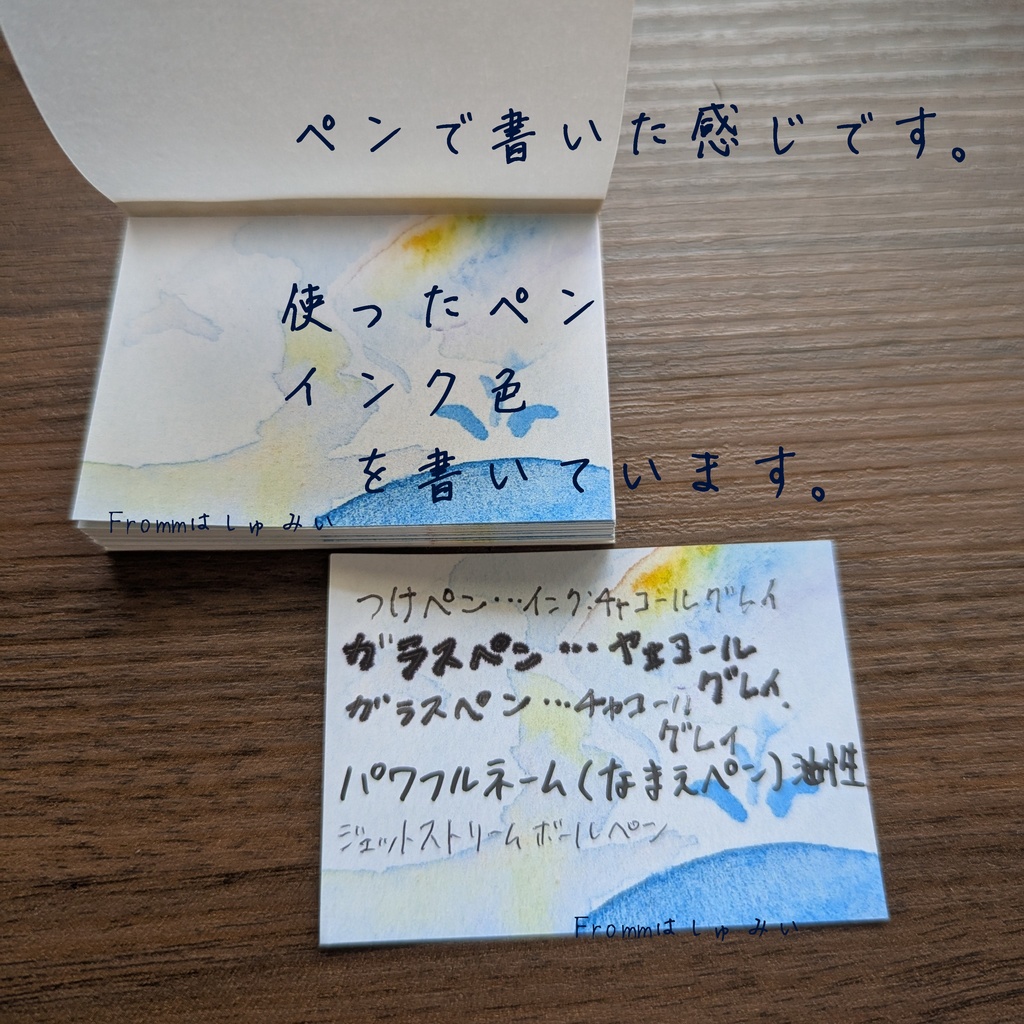 ペンで書いた感じです。
使ったペン
インク色
を書いています。
Frommはしゅみい
つけペン…インク:チャコールグレイ
ガラスペン…チャコール
グレイ.
ガラスペン…チャコール
グレイ
パワフルネーム(なまえペン)油性
ジェットストリームボールペン
Frommはしゅみい